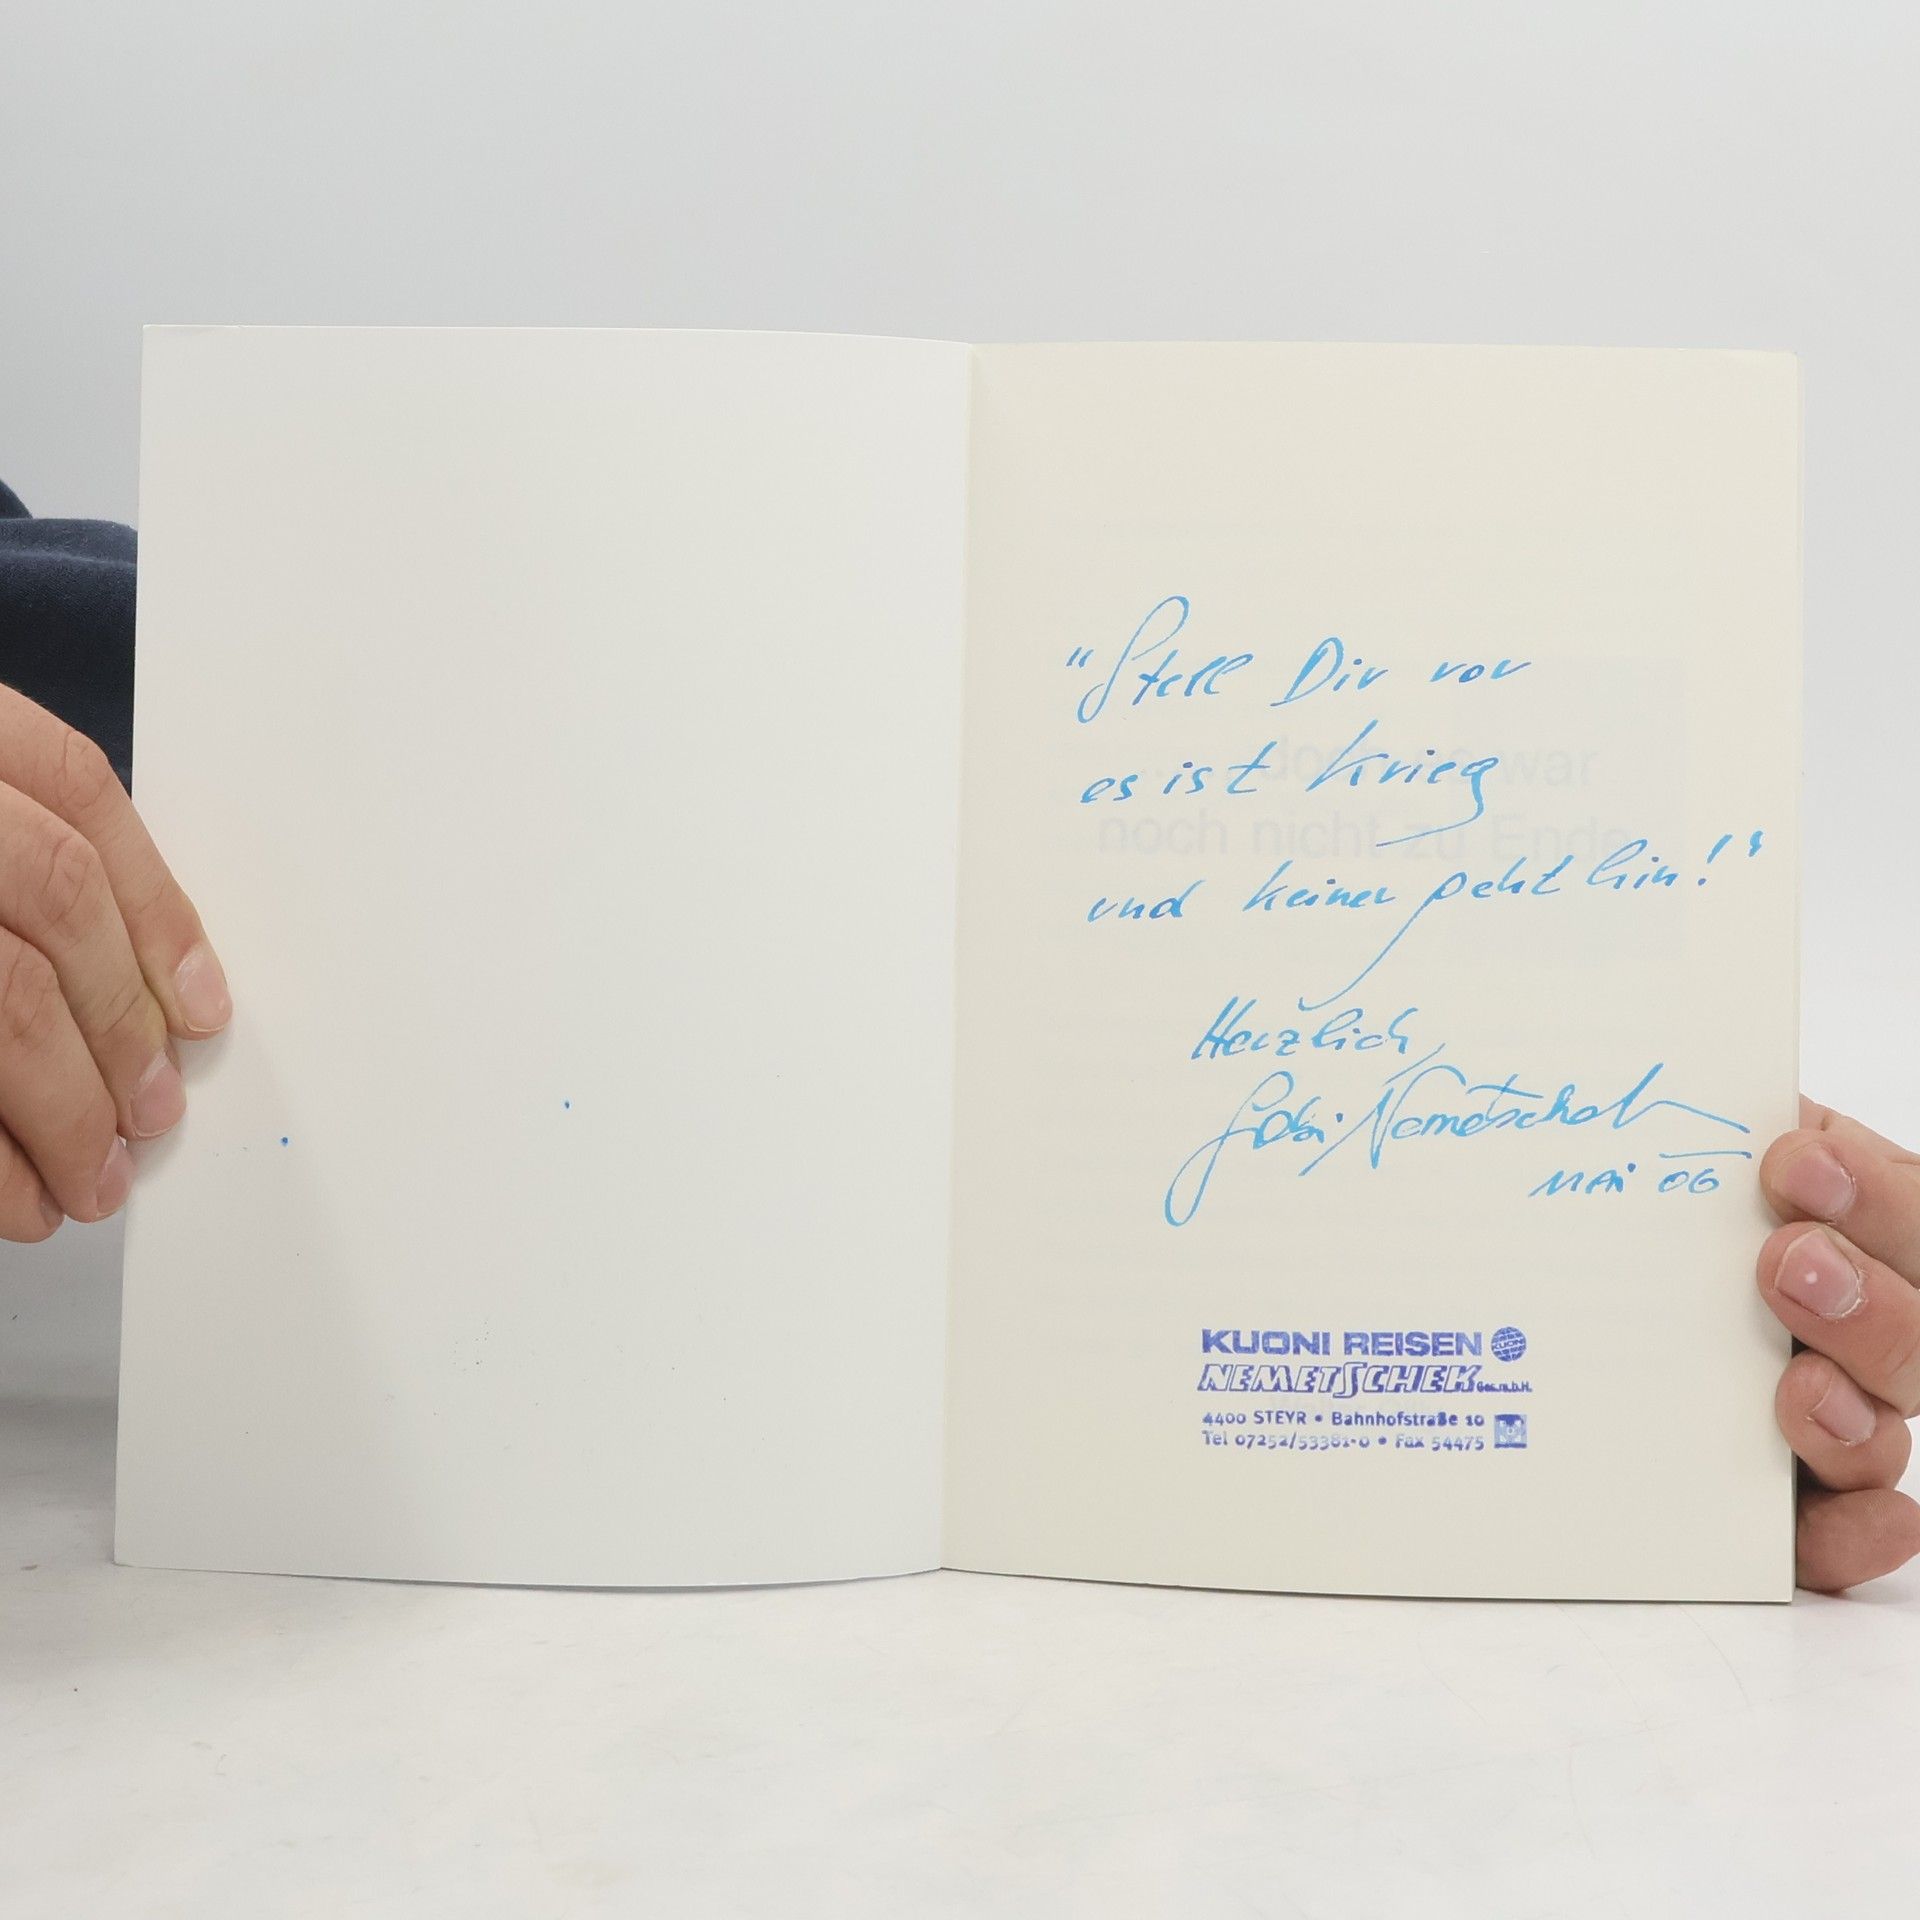 "Stell Dir vor
es ist Krieg
und keiner geht hin!"
Herzlich
Gabi Nemetschek
MAI 06
doch es war
noch nicht zu Ende
KUONI REISEN KUONI
NEMETSCHEK Ges.m.b.H.
4400 STEYR • Bahnhofstraße 10
Tel 07252/53381-0 • Fax 54475